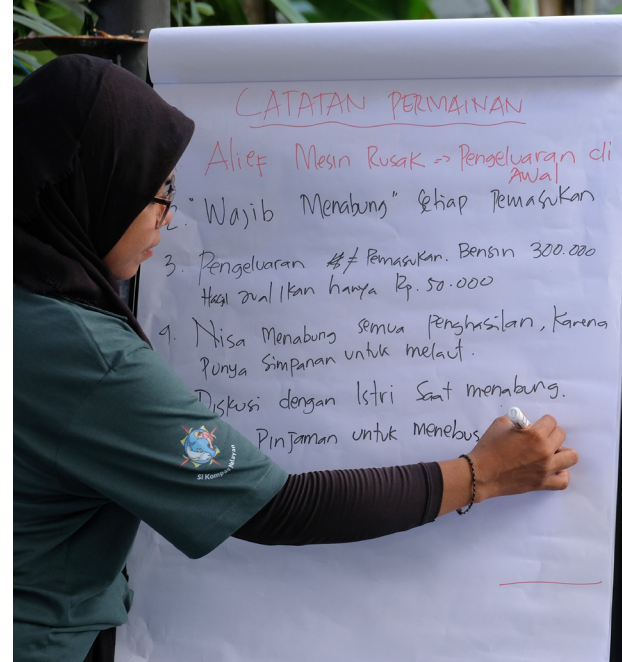 CATATAN PERMAINAN
Alief Mesin Rusak => Pengeluaran di
Awal
2. "Wajib Menabung" Setiap Pemasukan
3. Pengeluaran ≠ Pemasukan. Bensin 300.000
Hasil Jual Ikan hanya Rp. 50.000
4. Nisa Menabung semua Penghasilan, Karena
Punya Simpanan untuk melaut.
Diskusi dengan Istri Saat menabung.
Pinjaman untuk menebus
Si Kompas Nelayan